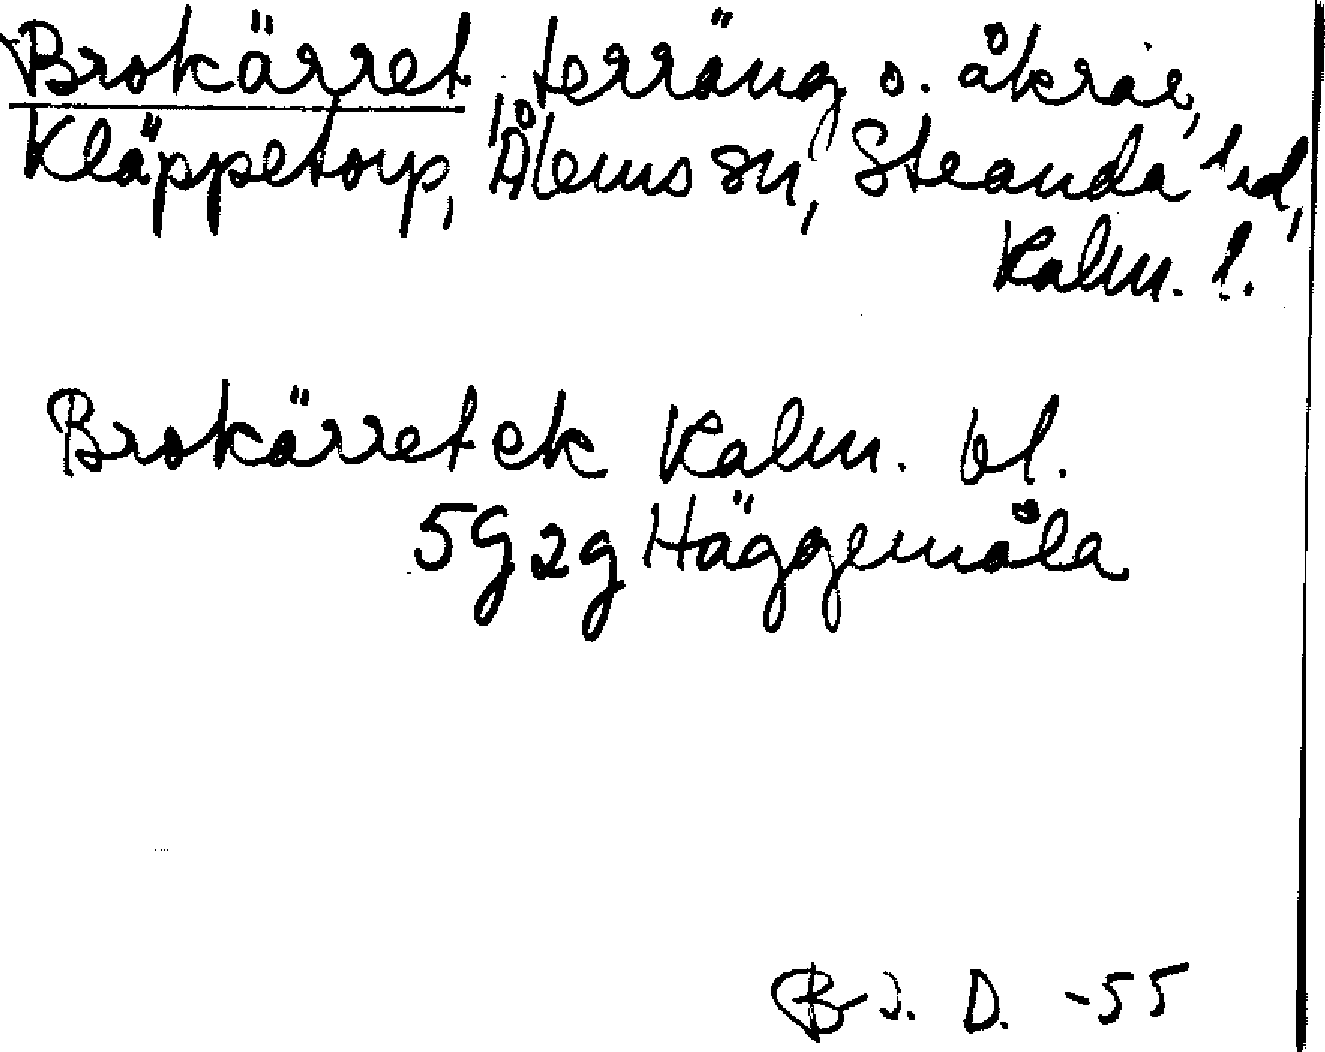 Brokärret, terräng o. åkrar,
Kläppetorp, Ålems sn, Stranda hd,
Kalm. l.
Brokärret ek Kalm. bl.
5G2g Häggemåla
B. J. D. -55